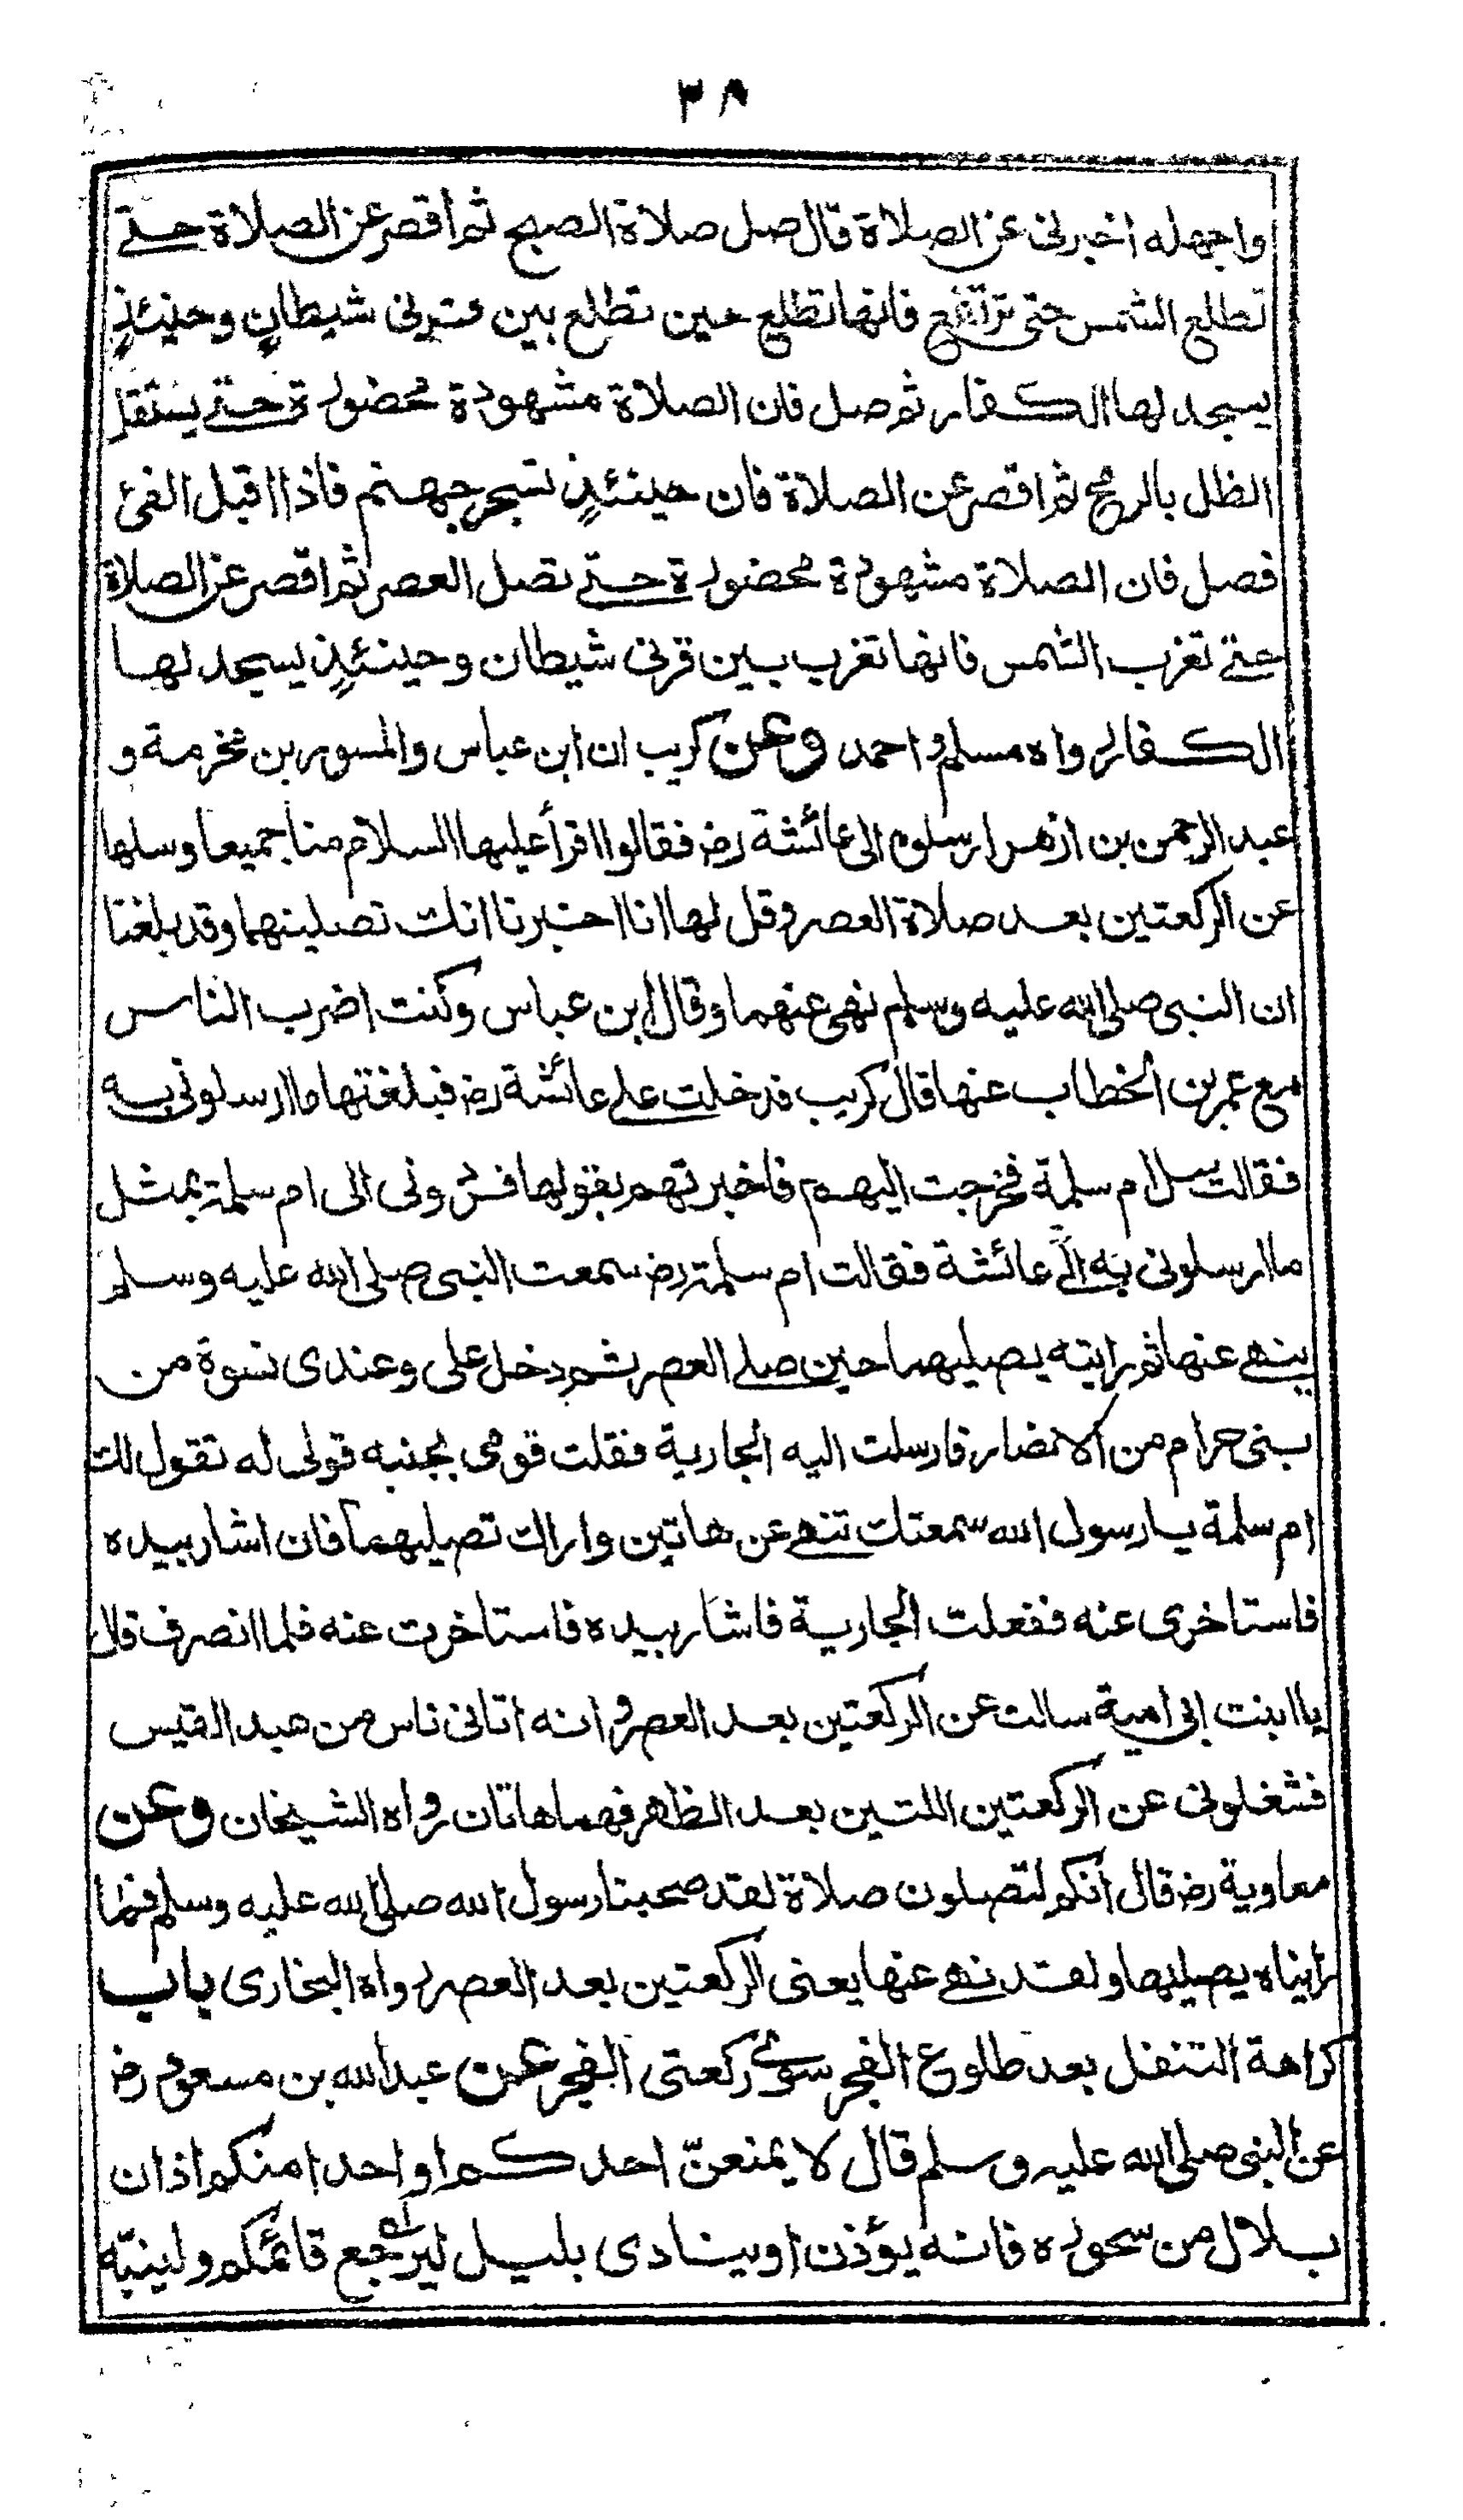 ٣٨
واجهله اخبرنی عن الصلاة قال صل صلاة الصبح ثم اقصر عن الصلاة حتے
تطلع الشمس حتی ترتفع فانها تطلع حین تطلع بین قرنی شیطان وحینئذٍ
یسجد لها الکفار ثم صل فان الصلاة مشهودة محضورة حتے یستقل
الظل بالرمح ثم اقصر عن الصلاة فان حینئذٍ تسجر جهنم فاذا اقبل الفئ
فصل فان الصلاة مشهودة محضورة حتے تصل العصر ثم اقصر عن الصلاة
حتے تغرب الشمس فانها تغرب بین قرنی شیطان وحینئذٍ یسجد لها
الکفار رواه مسلم و احمد وعن کریب ان ابن عباس والمسور بن مخرمة و
عبد الرحمن بن ازهر ارسلوه الی عائشة رض فقالوا اقرأ علیها السلام منا جمیعا وسلها
عن الرکعتین بعد صلاة العصر وقل لها انا اخبرنا انك تصلینهما وقد بلغنا
ان النبی صلی الله علیه وسلم نهی عنهما وقال ابن عباس وکنت اضرب الناس
مع عمر بن الخطاب عنها قال کریب فدخلت علے عائشة رض فبلغتها ما ارسلونی به
فقالت سل ام سلمة فخرجت الیهم فاخبرتهم بقولها فردونی الی ام سلمة بمثل
ما ارسلونی به الے عائشة فقالت ام سلمة رض سمعت النبی صلی الله علیه وسلم
ینهے عنها ثم رایته یصلیهما حین صلے العصر ثم دخل علی وعندی نسوة من
بنی حرام من الانصار فارسلت الیه الجاریة فقلت قومی بجنبه قولی له تقول لك
ام سلمة یا رسول الله سمعتك تنهے عن هاتین واراك تصلیهما فان اشار بیده
فاستاخری عنه ففعلت الجاریة فاشار بیده فاستاخرت عنه فلما انصرف قال
یا ابنت ابی امیة سالت عن الرکعتین بعد العصر و انه اتانی ناس من عبد القیس
فشغلونی عن الرکعتین اللتین بعد الظهر فهما هاتان رواه الشیخان وعن
معاویة رض قال انکم لتصلون صلاة لقد صحبنا رسول الله صلی الله علیه وسلم فما
رایناه یصلیها ولقد نهے عنها یعنی الرکعتین بعد العصر رواه البخاری باب
کراهة التنفل بعد طلوع الفجر سوی رکعتی الفجر عن عبد الله بن مسعود رض
عن النبی صلی الله علیه وسلم قال لا یمنعنّ احدکم او احدا منکم اذان
بلال من سحوره فانه یؤذن او ینادی بلیل لیرجع قائمکم ولینبّه